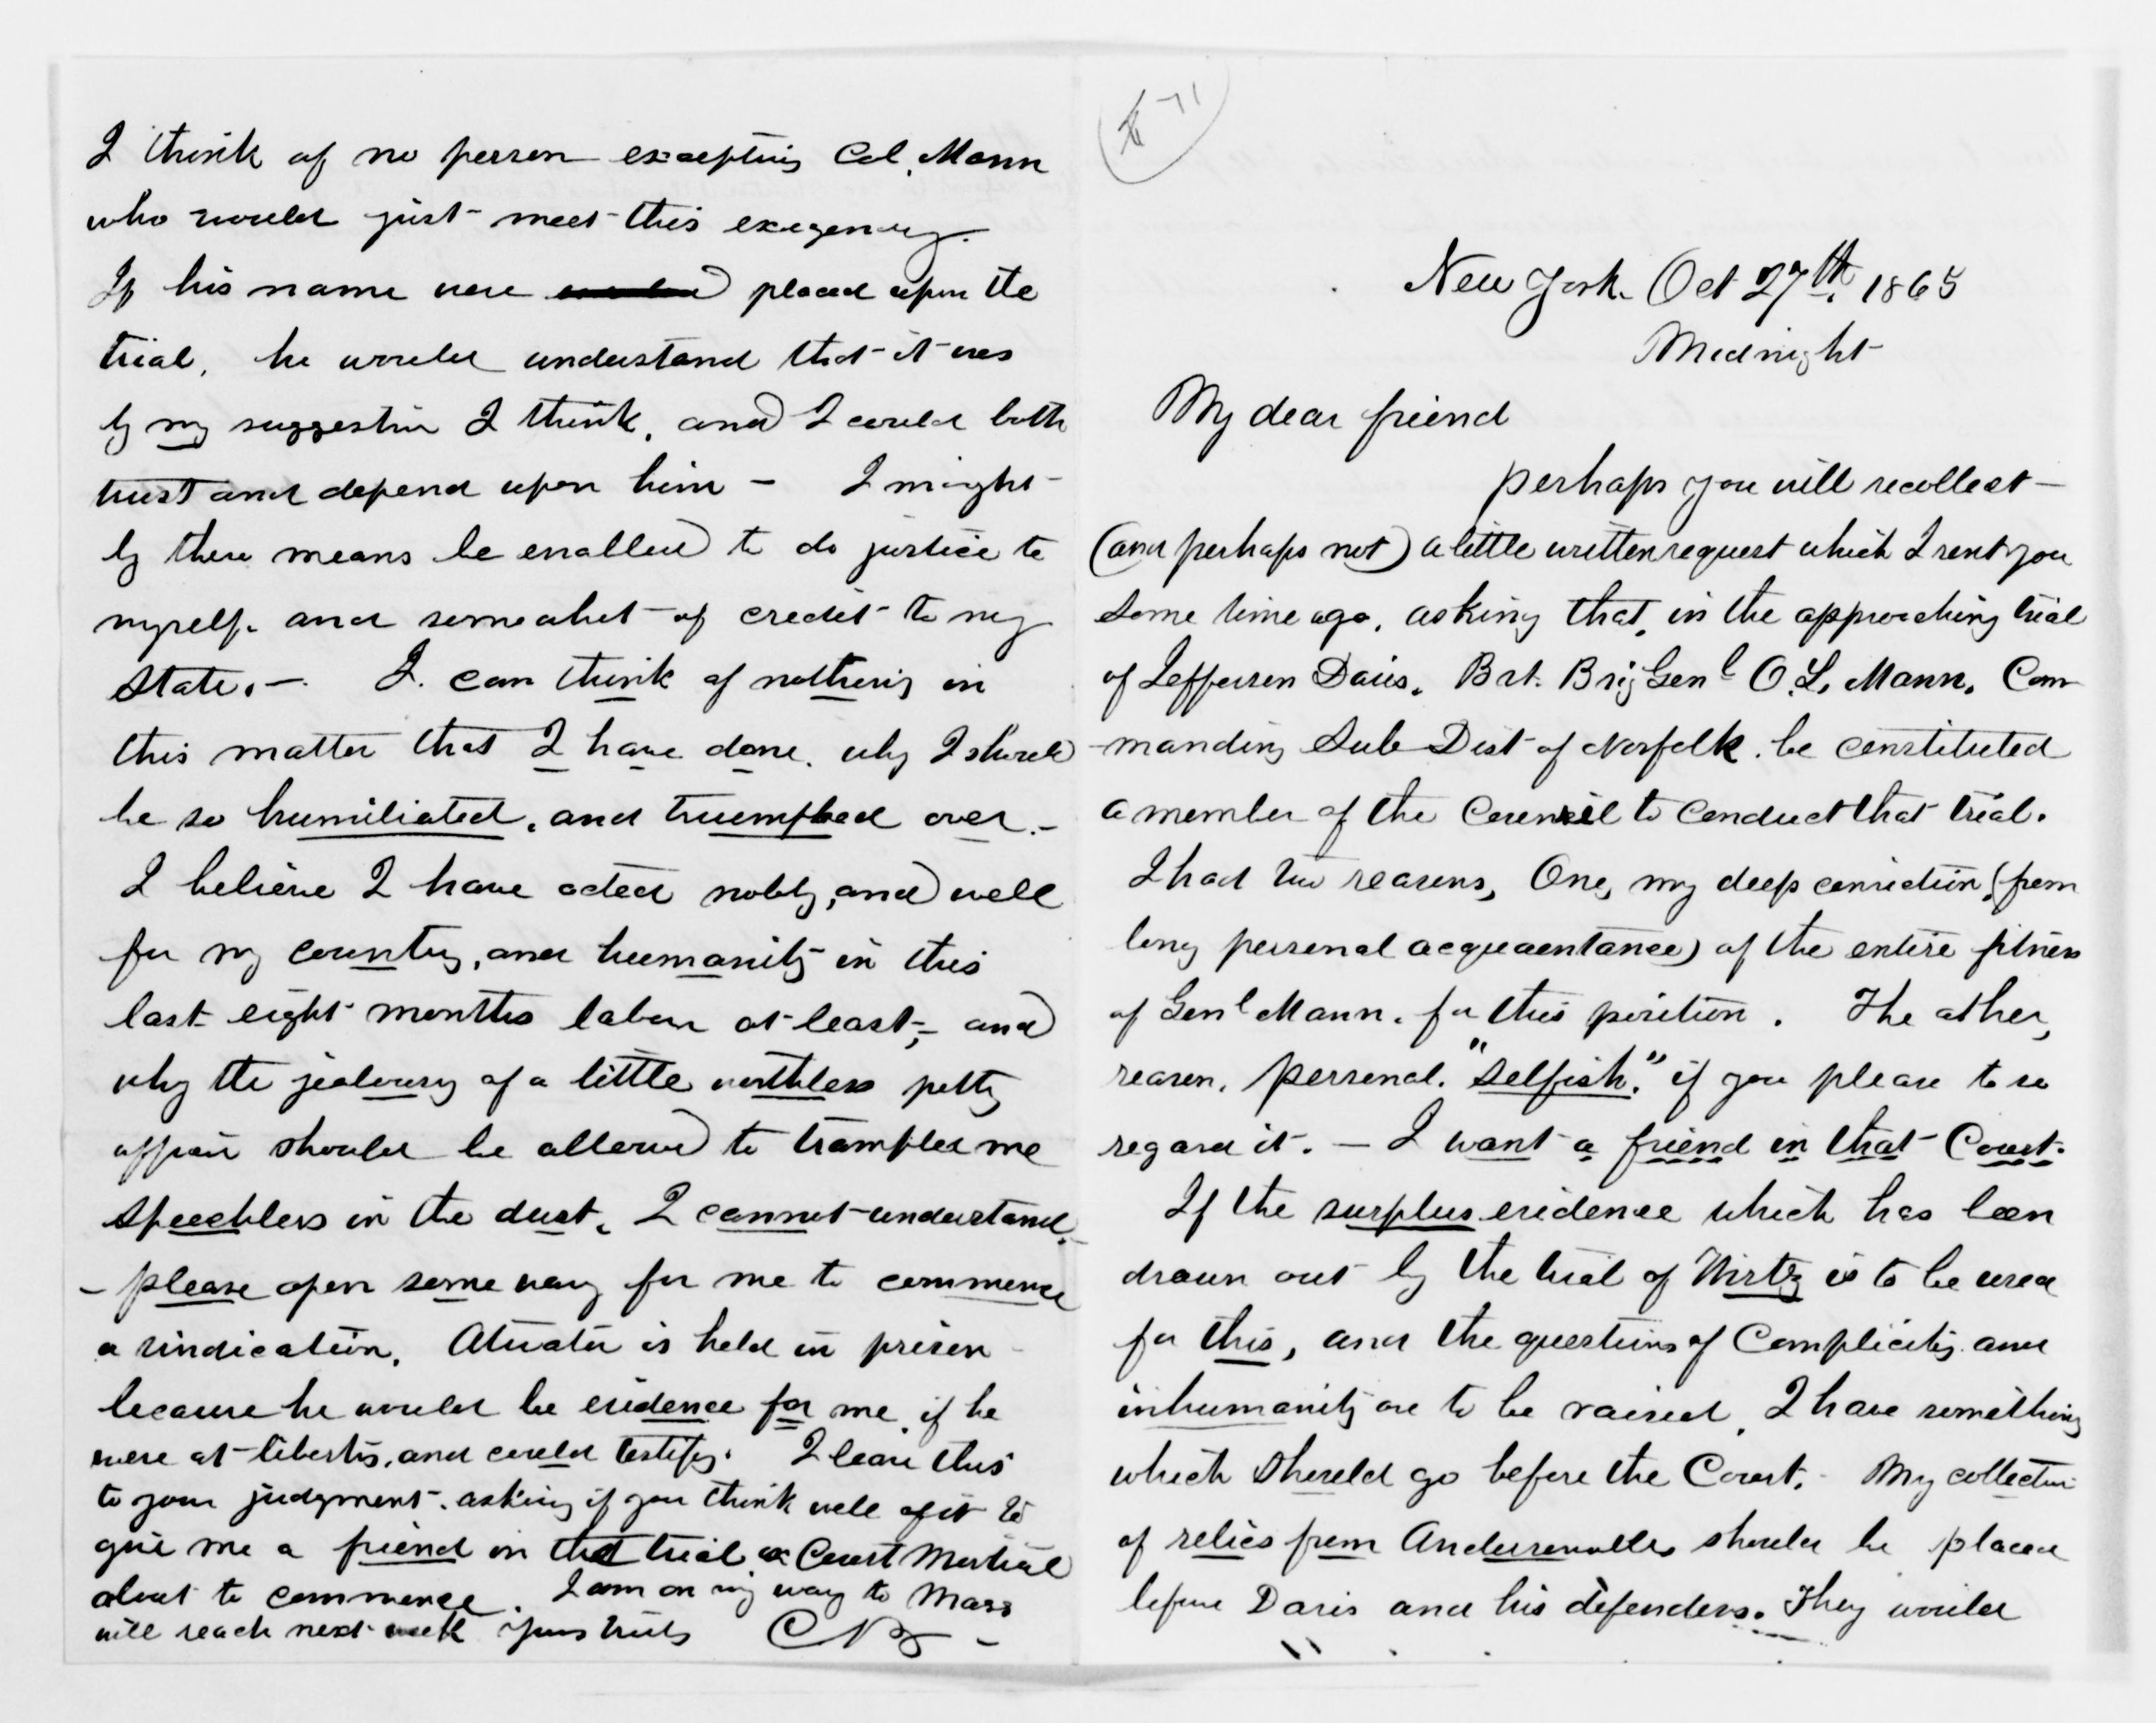 New York. Oct 27th. 1865
Midnight
My dear friend
perhaps you will recollect –
(and perhaps not) a little written request which I sent you
some time ago, asking that, in the approaching trial
of Jefferson Davis. Bvt. Brig Genl O. L. Mann. Com
manding Sub Dist of Norfolk. be constituted
a member of the Council to conduct that trial.
I had two reasons, One, my deep conviction, (from
long personal acquaentance) of the entire fitness
of Genl Mann. for this position. The other,
reason. personal. "selfish." if you please to so
regard it. – I want a friend in that Court.
If the surplus evidence which has been
drawn out by the trial of Wirtz is to be used
for this, and the questions of Complicity and
inhumanity are to be raised, I have something
which should go before the Court. - My collection
of relics from Andersonville should be placed
before Davis and his defenders. They would
I think of no person excepting Col. Mann
who would just meet this exegency.
If his name were placed upon the
trial, he would understand that it was
by my suggestion I think, and I could both
trust and depend upon him – I might
by these means be enabled to do justice to
myself. and somewhat of credit to my
State. – I can think of nothing in
this matter that I have done, why I should
be so humiliated, and truemphed over. –
I believe I have acted nobly, and well
for my country, and humanity in this
last eight months labor at least; – and
why the jealousy of a little worthless petty
affair should be allowed to trampled me
speechless in the dust, I cannot understand.
– please open some way for me to commence
a vindication. Atwater is held in prison
because he would be evidence for me, if he
were at liberty, and could testify. I leave this
to your judgment. asking if you think well of it to
give me a friend in that trial, or Court Martial
about to commence. I am on my way to Mass
will reach next week Yours truly CB –